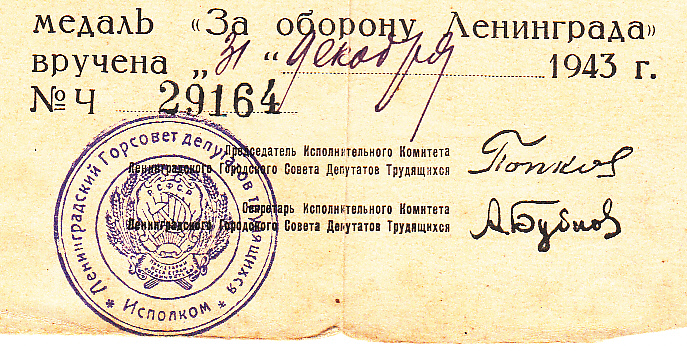 медаль «За оборону Ленинграда»
вручена „ 31 “ декабря 1943 г.
№ Ч 29164
Председатель Исполнительного Комитета
Ленинградского Городского Совета Депутатов Трудящихся
Попков
Секретарь Исполнительного Комитета
Ленинградского Городского Совета Депутатов Трудящихся
А Бубнов
Ленинградский Горсовет депутатов трудящихся
* Исполком *
РСФСР